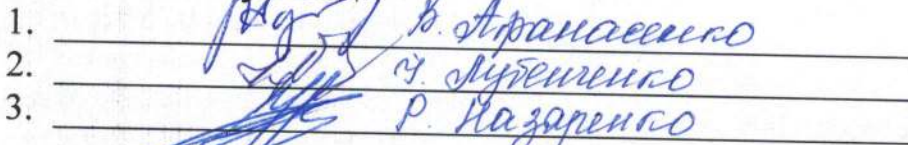 1. В. Афанасенко
2. І. Лутенченко
3. Р. Назаренко